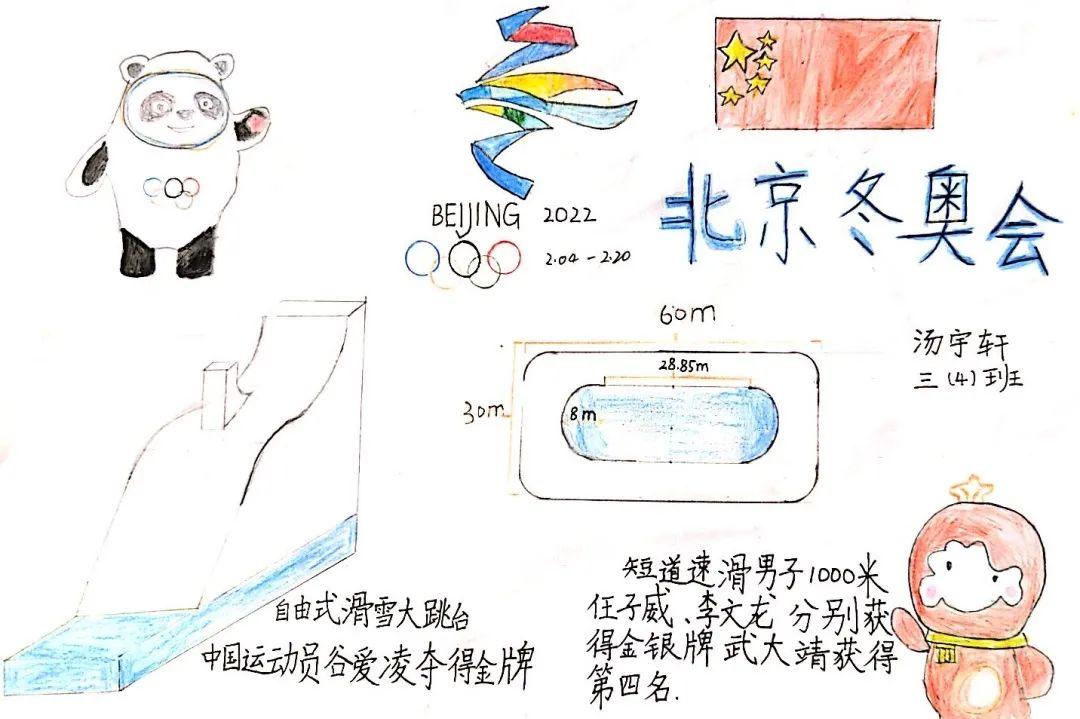 BEIJING 2022
2.04-2.20
北京冬奥会
汤宇轩
三(4)班
60m
28.85m
30m
8m
自由式滑雪大跳台
中国运动员谷爱凌夺得金牌
短道速滑男子1000米
任子威、李文龙分别获
得金银牌武大靖获得
第四名.